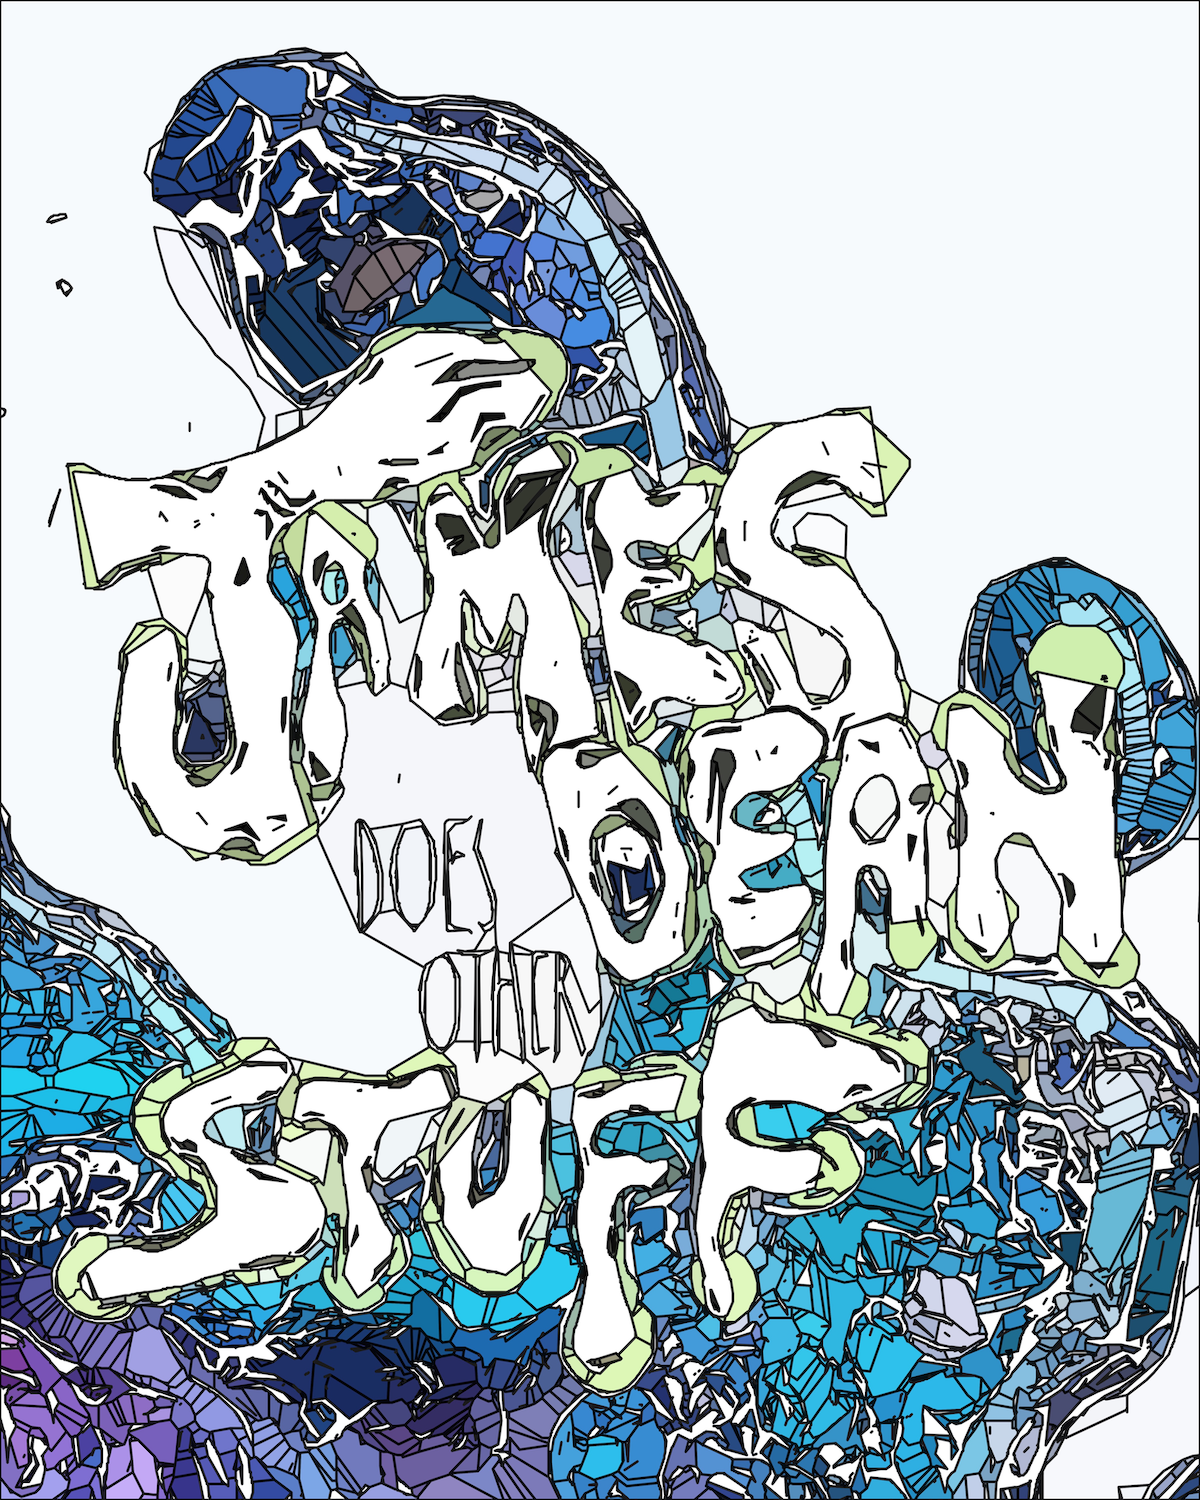 JAMES
DEAN
DOES
OTHER
STUFF